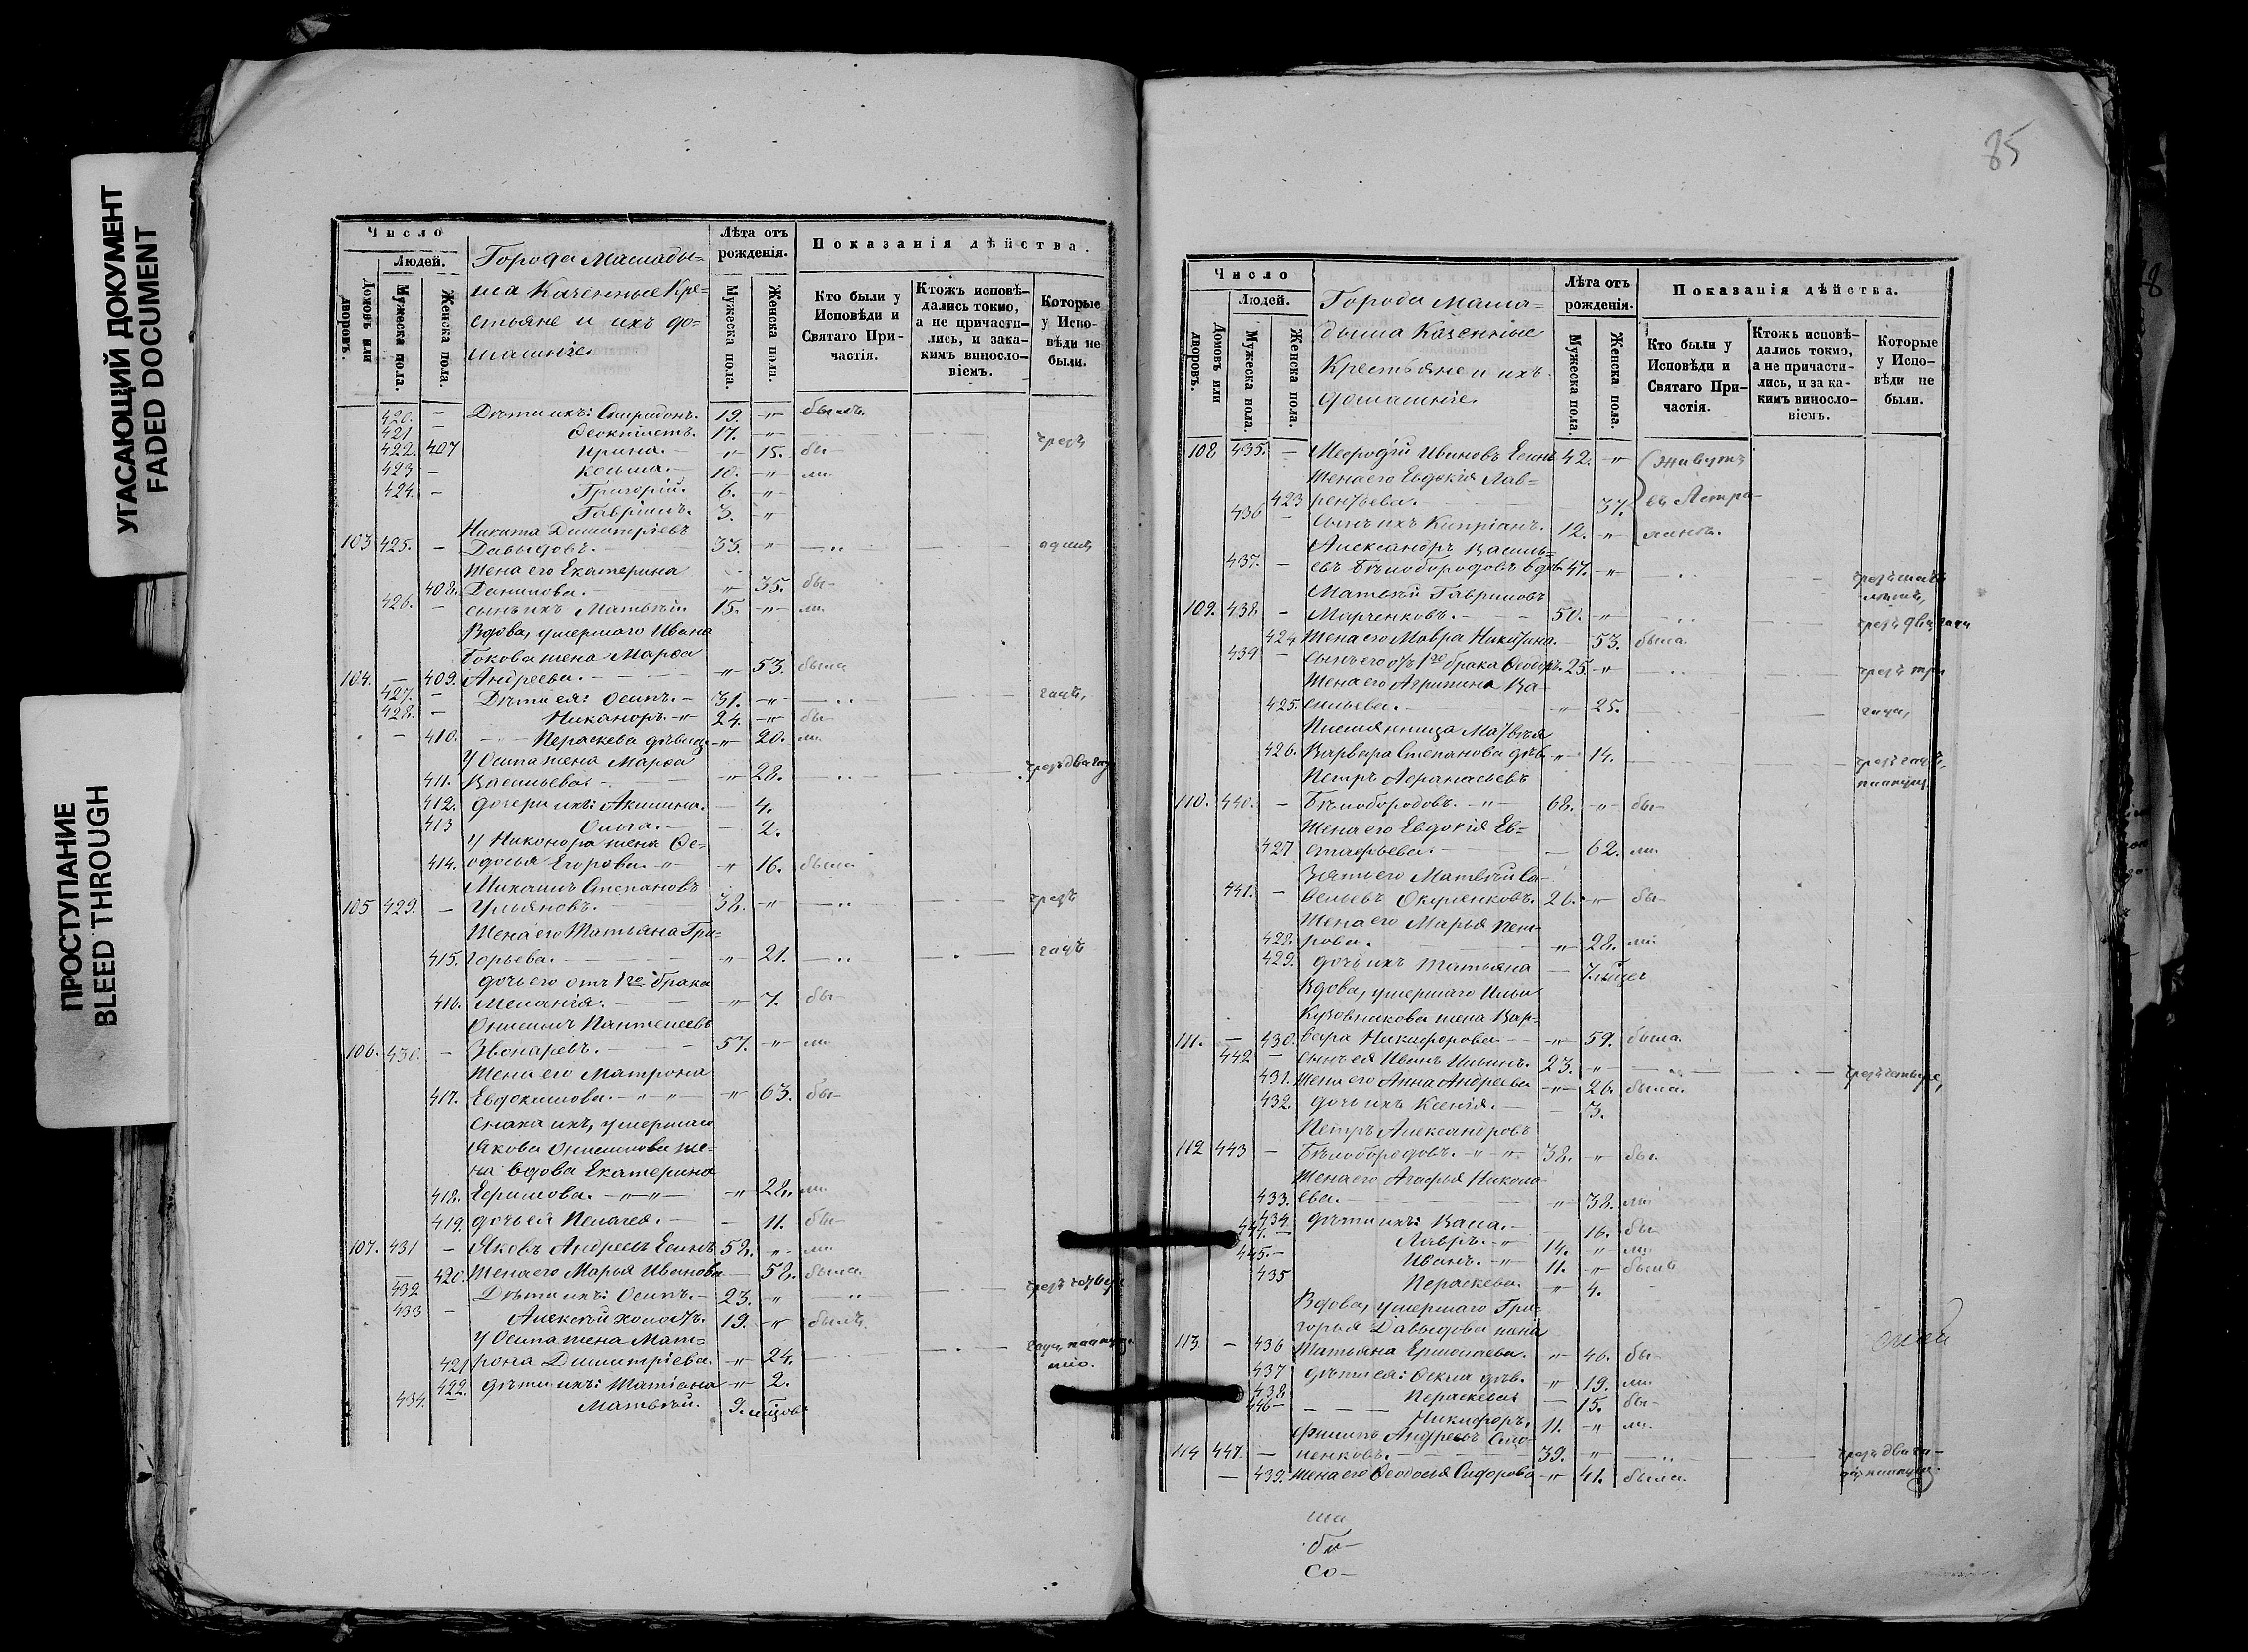 УГАСАЮЩИЙ ДОКУМЕНТ
FADED DOCUMENT
ПРОСТУПАНИЕ
BLEED THROUGH
Число
Людей.
Домовъ или дворовъ.
Мужеска пола.
Женска пола.
Города Мамады-
ша Казенные Кре-
стьяне и ихъ до-
машніе
Лѣта отъ рожденія.
Мужеска пола.
Женска пола.
Показанія дѣйства.
Кто были у Исповѣди и Святаго При-частія.
Ктожъ исповѣ-дались токмо, а не причасти-лись, и зака-кимъ винослo-віемъ.
Которые у Испо-вѣди не были.
420. — Дѣти ихъ: Спиридонъ. 19. —"— былъ.
421 — Ѳеоктистъ. 17. —"— чрезъ
422. 407 Ирина. —"— 15. бы—
423 — Косьма. 10. —"— ли
424. — Григорій. 6. —"—
Гавріилъ. 3. —"—
Никита Димитріевъ
103 425. — Давыдовъ. 33. —"—
Жена его Екатерина
408. Данилова. —"— 35. бы—
426. — сынъ ихъ Матвѣй 15. —"— ли
Вдова, умершаго Ивана
Бокова жена Марѳа
104. — 409. Андреева. —"— 53. была
427. — Дѣти ея: Осипъ. 31. —"—
428. — Никаноръ. 24. —"— бы—
— 410. Параскева дѣвица —"— 20. ли
У Осипа жена Марѳа
411. Васильева —"— 28. чрезъ два го
412. дочери ихъ: Акилина. — 4.
413 Ольга. — 2.
У Никонора жена Ѳе-
414. одосья Егорова. —"— 16. была
Михаилъ Степановъ
105 429. — Ульяновъ. 38. —"— чрезъ
Жена его Татьяна Гри-
415. горьева. —"— 21. годъ
дочь его отъ 1го брака
416. Меланія. —"— 7. бы—
Онисимъ Пантелеевъ
106. 430. — Звонаревъ. 57. —"— ли
Жена его Матрона
417. Евдокимова. —"— 63. бы—
Сноха ихъ, умершаго
Якова Онисимова же-
на вдова Екатерина
418. Ефимова. —"— 28. ли
419. дочь ея Пелагея. — 11. бы—
107. 431 — Яковъ Андреевъ Есинъ 58. —"— ли
— 420. Жена его Марья Иванова — 58. была
432 Дѣти ихъ: Осипъ. 23. "
433 — Алексѣй холостъ. 19. —"— былъ.
У Осипа жена Мат-
421 рона Димитріева. —"— 24.
422. дѣти ихъ: Татіана —"— 2.
434. Матвѣй. 9. мѣсцовъ
85
Число
Людей.
Домовъ или дворовъ.
Мужеска пола.
Женска пола.
Города Мама-
дыша Казенные
Крестьяне и ихъ
домашніе
Лѣта отъ рожденія.
Мужеска пола.
Женска пола.
Показанія дѣйства.
Кто были у Исповѣди и Святаго При-частія.
Ктожъ исповѣ-дались токмо, а не причасти-лись, и за ка-кимъ винослo-віемъ.
Которые у Испо-вѣди не были.
108 435. — Меѳодій Ивановъ Есинъ 42. —"— живутъ
Жена его Евдокія Лав-
423 рентьева. 37. въ Астра-
436 — сынъ ихъ Кипріанъ. 12. —"— хани.
Александръ Василь-
437. — евъ Бѣлобородовъ вдов. 47. —"—
Матвѣй Гавриловъ
109. 438. — Марченковъ. 50. —"—
424. Жена его Мавра Никитина. — 53. была
439 — сынъ его отъ 1го брака Ѳеодоръ. 25. —"— чрезъ три
Жена его Агрипина Ва-
425. сильева. —"— 25. года,
Племянница Матвѣя
426. Варвара Степанова дѣв. —"— 14.
Петръ Аѳанасьевъ
110. 440. — Бѣлобородовъ. 68. —"— бы—
Жена его Евдокія Ев-
427 стафьева. — 62. ли
Зять его Матвѣй Са-
441. — вельевъ Окуленковъ. 20. —"— бы—
Жена его Марья Пет-
428. рова. —"— 28. ли
429. дочь ихъ Татьяна — 7. мѣсц
Вдова, умершаго Ильи
Кузовникова жена Вар-
111. — 430. вара Никифорова —"— 59. была
442 — сынъ ея Иванъ Ильинъ. 23. —"— чрезъ четыре,
431. Жена его Анна Андреева —"— 20. была.
432. дочь ихъ Ксенія. — 3.
Петръ Александровъ
112 443 — Бѣлобородовъ. 38. —"— бы
Жена его Агафья Никола-
433. ева. —"— 38. ли
434 дѣти ихъ: Васса. — 16. бы
444. — Лавръ. 14. —"— ли
445. — Иванъ. 11. —"— былъ
435 Параскева. —"— 4.
Вдова, умершаго Гри-
горья Давыдова жена
113 — 436 Татьяна Ермолаева. —"— 40. бы—
437 дѣти ея: Ѳекла дѣв. —"— 19. ли
438 Параскева — 15. бы—
446 — Никифоръ. 11. —"— ли
Филипъ Андреевъ Сидо-
114 447. — ненковъ. 39. —"— чрезъ два го-
— 439. Жена его Ѳеодосья Сидорова —"— 41. была.
ша
бы—
со—